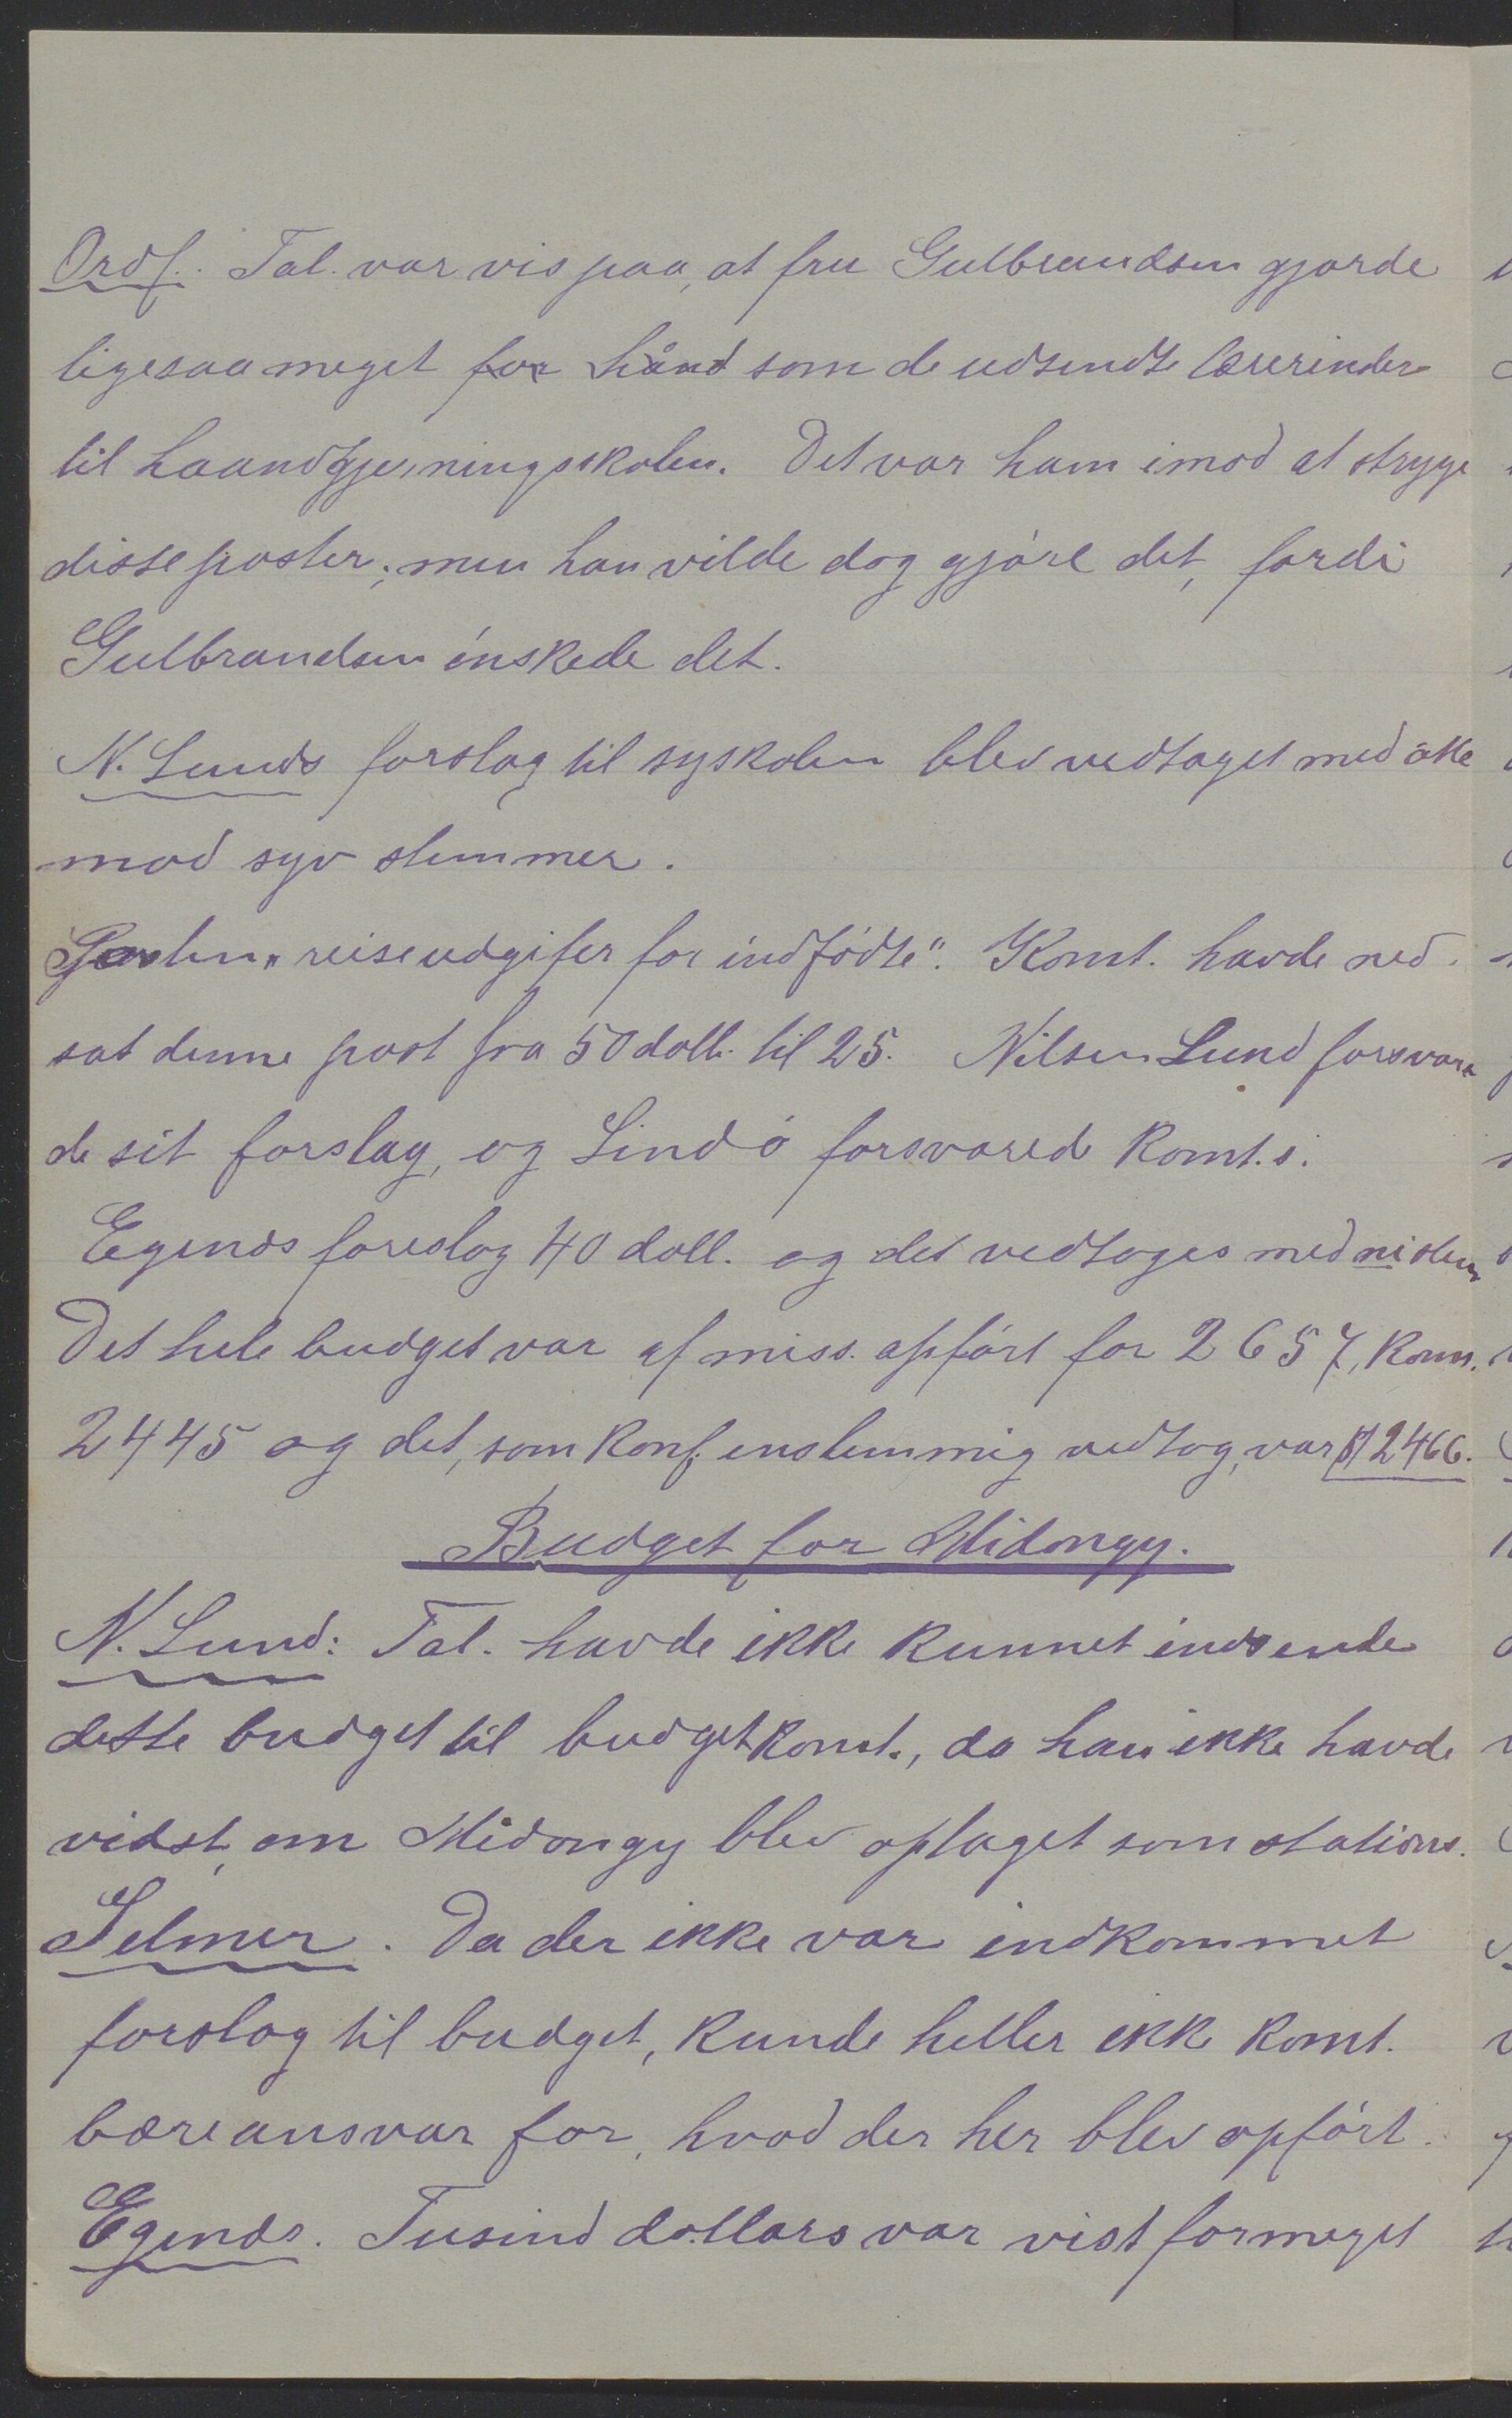 Ordf. Tal. var vis paa, at fru Gulbrandsen gjorde
ligesaa meget for hånd som de udsendte lærerinder
til haandgjerningsskolen. Det var ham imod at stryge
disse poster; men han vilde dog gjöre det, fordi
Gulbrandsen önskede det.
N. Lunds forslag til syskolen blev vedtaget med otte
mod syv stemmer.
Posten „reiseudgifer for indfödte". Komt. havde ned-
sat denne post fra 50 doll. til 25. Nilsen Lund forsvare
de sit forslag, og Lindö forsvared Komt.s.
Egenæs foreslog 40 doll. og det vedtoges med ni stem
Det hele budget var af miss. opfört for 2657, Kom.
2445 og det, som Konf. enstemmig vedtog, var $ 2466.
Budget for Midongy.
N. Lund: Tal. havde ikke kunnet indsende
dette budget til budgetkomt., da han ikke havde
vidst, om Midongy blev optaget som stations.
Selmer. Da der ikke var indkommet
forslag til budget, kunde heller ikke Komt.
bære ansvar for, hvad der her blev opfört.
Egenæs. Tusind dollars var vist formeget